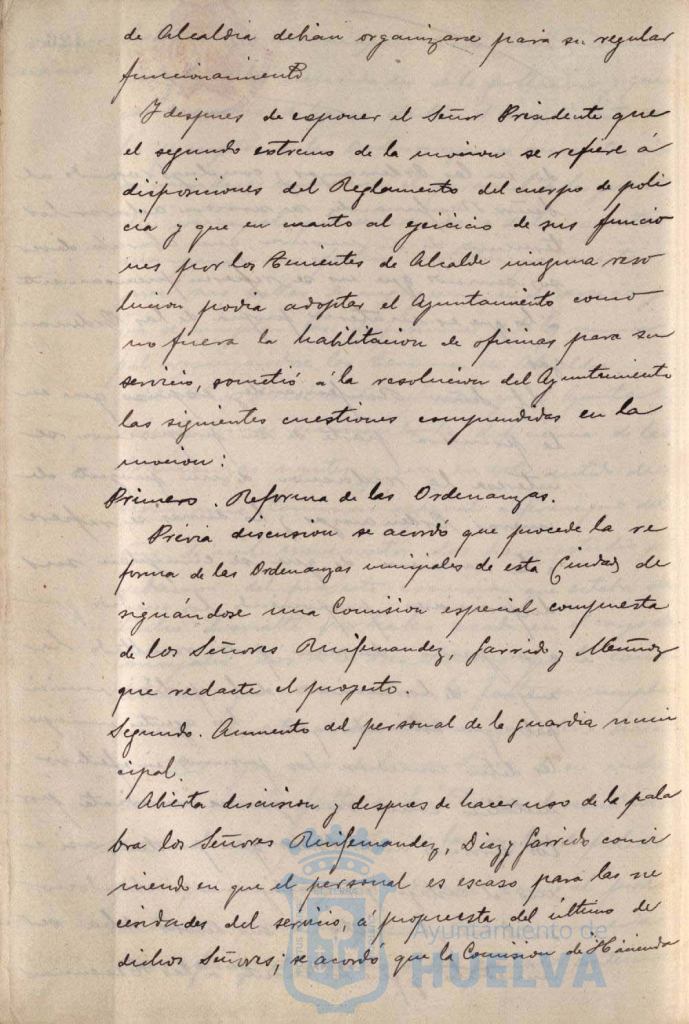 de Alcaldia debian organizarse para su regular
funcionamiento
Y despues de exponer el Señor Presidente que
el segundo extremo de la mocion se refiere á
disposiciones del Reglamento del cuerpo de poli
cia y que en cuanto al ejercicio de sus funcio
nes por los Tenientes de Alcalde ninguna reso
lucion podia adoptar el Ayuntamiento como
no fuera la habilitacion de oficinas para su
servicio, sometió á la resolucion del Ayuntamiento
las siguientes cuestiones comprendidas en la
mocion:
Primero. Reforma de las Ordenanzas.
Prévia discusion se acordó que procede la re
forma de las Ordenanzas municipales de esta Ciudad de
signándose una Comision especial compuesta
de los Señores Ruifernandez, Garrido y Muñoz
que redacte el proyecto.
Segundo. Aumento del personal de la guardia muni
cipal.
Abierta discusion y despues de hacer uso de la pala
bra los Señores Ruifernandez, Diaz y Garrido convi
niendo en que el personal es escaso para las ne
cesidades del servicio, á propuesta del último de
dichos Señores; se acordó que la Comision de Hacienda
Ayuntamiento de
HUELVA